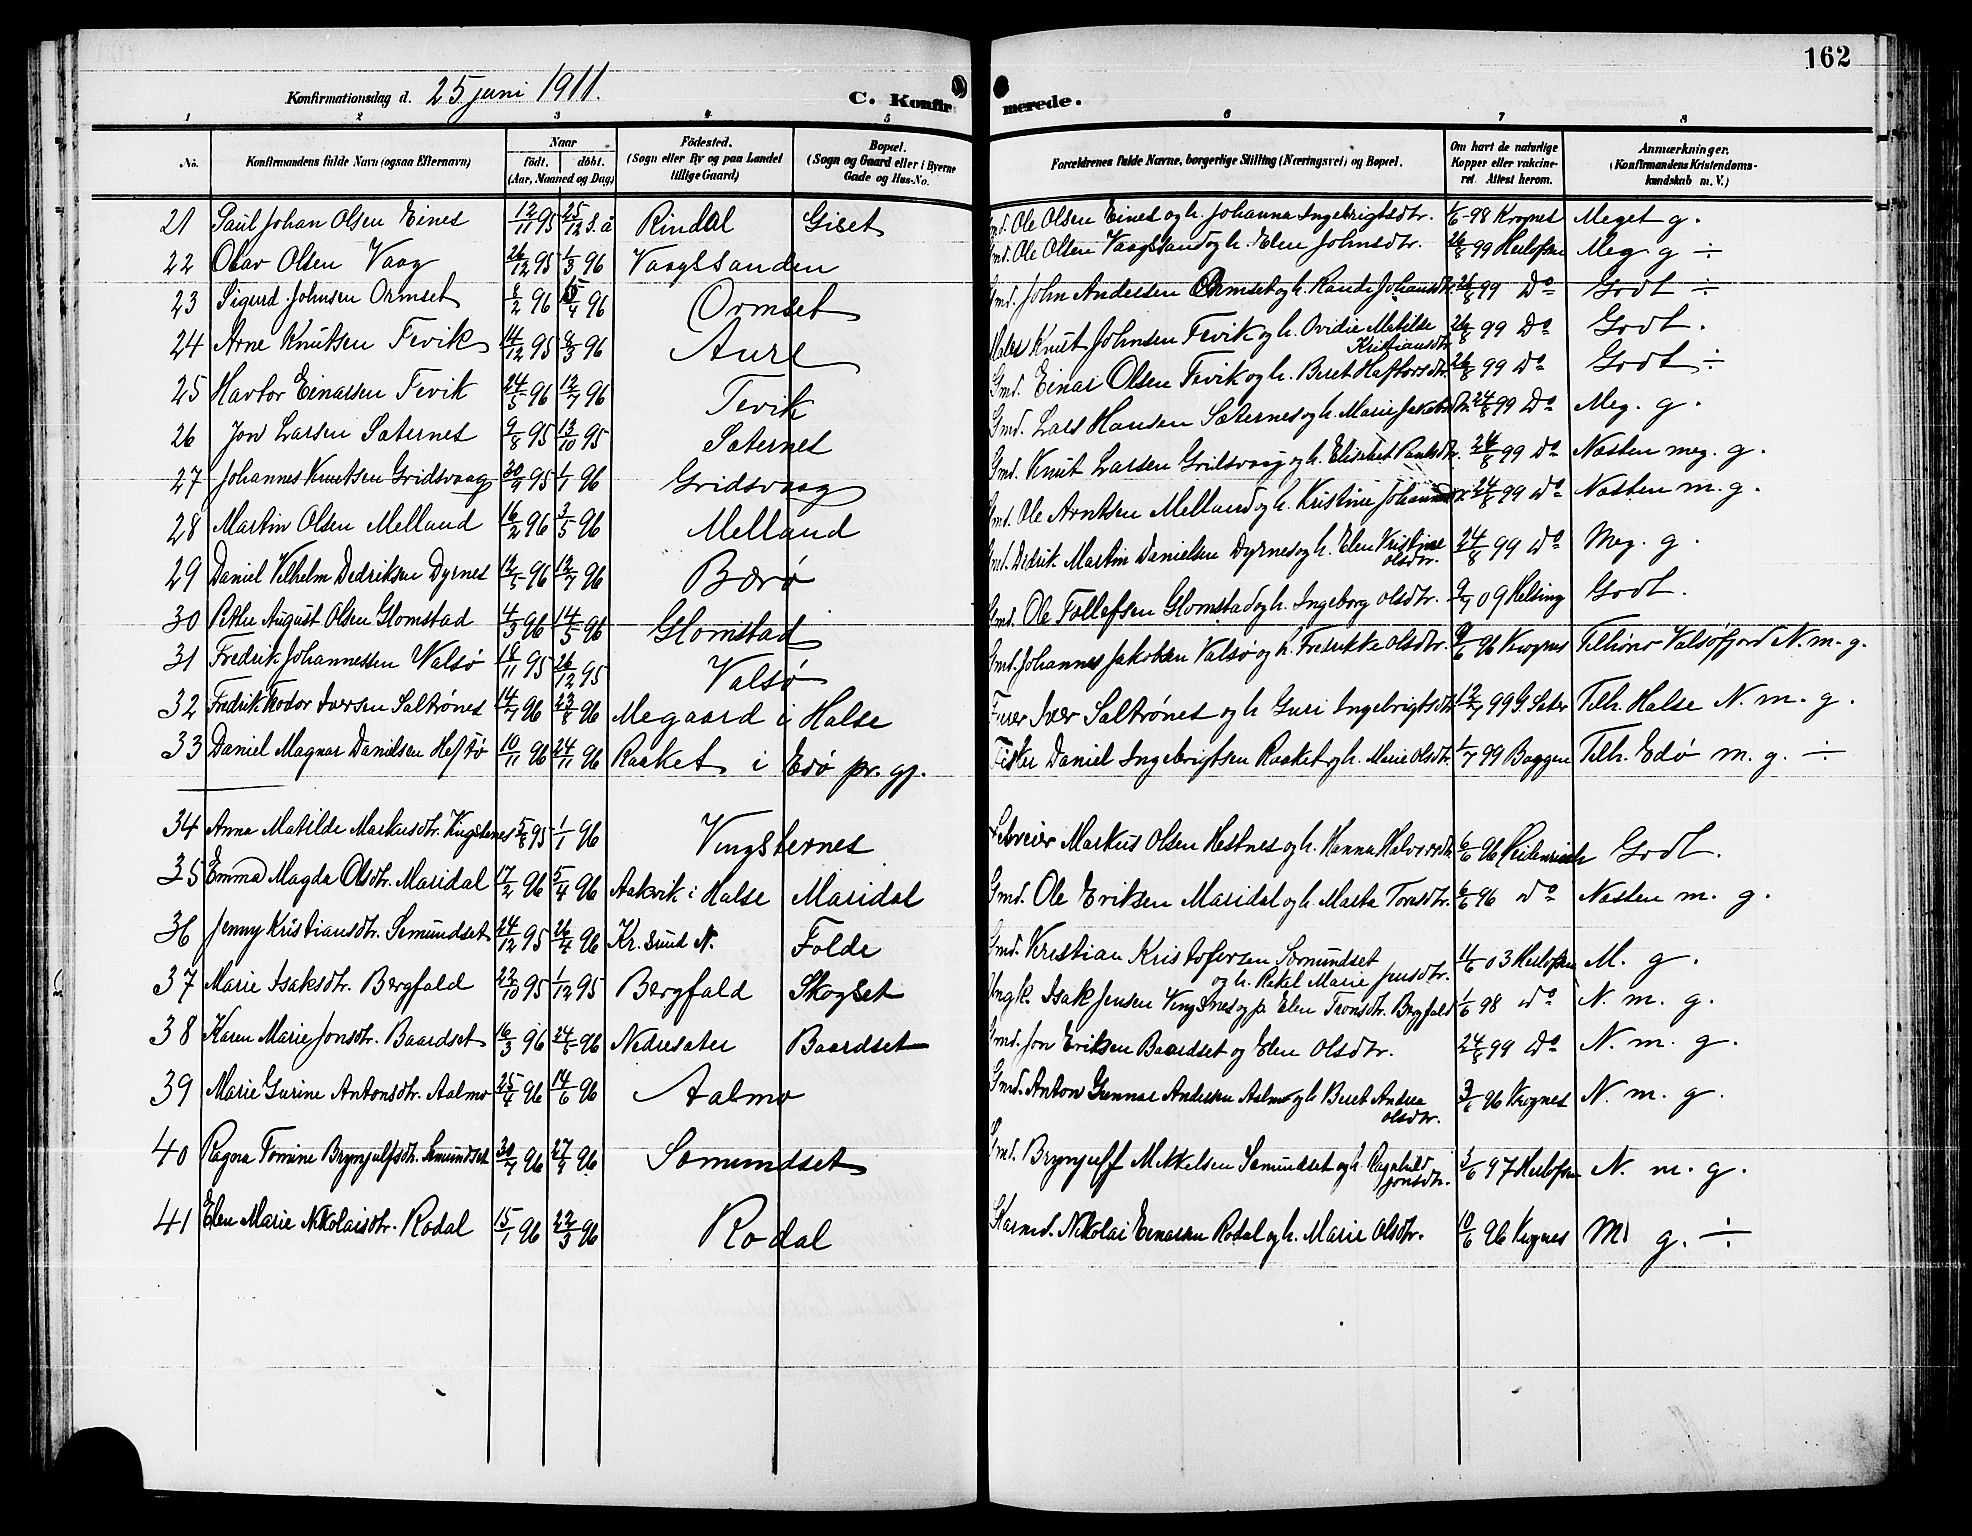 162
Konfirmationsdag d. 25 juni 1911. C. Konfirmerede.
1 2 3 4 5 6 7 8
No. Konfirmandens fulde Navn (ogsaa Efternavn) Naar födt. döbt. (Aar, Maaned og Dag) Födested. (Sogn eller By og paa Landet tillige Gaard) Bopæl. (Sogn og Gaard eller i Byerne Gade og Hus-No. Forældrenes fulde Navne, borgerlige Stilling (Næringsvei) og Bopæl. Om havt de naturlige Kopper eller vakcineret. Attest herom. Anmærkninger. (Konfirmandens Kristendomskundskab m. V.)
21 Paul Johan Olsen Eines 12/11 95 25/12 s.å Rindal Giset Gmd. Ole Olsen Eines og h. Johanna Ingebrigtsdtr. 1/6 98 Krognes Meget g.
22 Olav Olsen Vaag 26/12 95 1/3 96 Vaagssanden Gmd. Ole Olsen Vaagssand og h. Elen Johnsdtr. 26/8 99 Herlofsen Meg. g ÷
23 Sigurd Johnsen Ormset 8/2 96 5/4 96 Ormset Gmd. John Andersen Ormset og h. Randi Johansdtr. 26/8 99 Do Godt ÷
24 Arne Knutsen Tevik 14/12 95 8/3 96 Aure Maler Knut Johnsen Tevik og h. Ovidie Matilde Kristiansdtr. 26/8 99 Do Godt.
25 Havtor Einarsen Tevik 24/5 96 12/7 96 Tevik Gmd. Einar Olsen Tevik og h. Beret Haftorsdtr. 26/8 99 Do Godt ÷
26 Jon Larsen Saternes 9/8 95 13/10 95 Saternes Gmd. Lars Hansen Saternes og h. Marie Jakobsdtr. 24/8 99 Do Meg. g.
27 Johannes Knutsen Gridsvaag 30/9 95 1/1 96 Gridsvaag Gmd. Knut Larsen Gridsvaag og h. Elisabet Paulsdtr. 24/8 99 Do Nasten meg. g.
28 Martin Olsen Melland 16/2 96 3/5 96 Melland Gmd. Ole Arntsen Melland og h. Kristine Johannesdtr 24/8 99 Do Nasten m. g.
29 Daniel Vilhelm Dedriksen Dyrnes 12/5 96 12/7 96 Bærø Gmd. Dedrik Martin Danielsen Dyrnes og h. Elen Kristine Olsdtr. 24/8 99 Do Meg. g.
30 Petter August Olsen Glomstad 4/3 96 14/5 96 Glomstad Gmd. Ole Tollefsen Glomstad og h. Ingeborg Olsdtr. 9/7 09 Helsing Godt.
31 Fredrik Johannessen Valsø 18/11 95 26/12 95 Valsø Gmd. Johannes Jakobsen Valsø og h. Fredrikke Olsdtr. 9/6 96 Krognes Tilhører Valsøfjord N. m. g.
32 Fredrik Teodor Iversen Saltrønes 14/7 96 23/8 96 Megaard i Halse Iver Saltrønes og h Guri Ingebrigtsdtr 12/7 99 G. Sæter Tilh. Halse N. m. g.
33 Daniel Magnar Danielsen Heftø 10/11 96 24/11 96 Raaket i Edø pr. gj. Fisker Daniel Ingebrigtsen Raaket og h. Marie Olsdtr. 1/7 99 Baggen Tilh. Edø m. g. ÷
34 Anna Matilde Markusdtr. Vingsternes 5/8 95 1/1 96 Vingsternes Markus Olsen Hestnes og h. Hanna Halvorsdtr 6/6 96 Godt.
35 Emma Magda Olsdtr. Maridal 17/2 96 5/4 96 Aakvik i Halse Maridal Gmd. Ole Eriksen Maridal og h. Marta Toresdtr. 6/6 96 do Nasten m. g.
36 Jenny Kristiansdtr. Semundset 24/12 95 26/4 96 Kr.sund N. Folde Gmd. Kristian Kristofersen Semundset og h. Rakel Marie Jensdtr. 11/6 03 Herlofsen M. g.
37 Marie Isaksdtr. Bergfald 22/10 95 1/12 95 Bergfald Skogset Ungk. Isak Jensen Vingsnes og p. Elen Tronsdtr. Bergfald 1/6 98 do N. m. g.
38 Karen Marie Jonsdtr. Baardset 16/3 96 24/5 96 Nedresater Baardset Gmd. Jon Eriksen Baardset og Elen Olsdtr. 24/8 99 Do N. m. g.
39 Marie Gurine Antonsdtr. Aalmo 25/4 96 14/6 96 Aalmo Gmd. Anton Gunnar Andersen Aalmo og h Beret Andrea Olsdtr. 3/6 96 Krognes N. m. g.
40 Ragna Tomine Brynjulfsdtr. Semundset 30/7 96 27/9 96 Semundset Gmd. Brynjulf Mikkelsen Semundset og h. Ragnhild Jonsdtr. 3/6 97 Herlofsen N. m. g.
41 Elen Marie Nikolaisdtr. Rodal 15/1 96 22/3 96 Rodal Nikolai Einarsen Rodal og h. Marie Olsdtr. 10/6 96 Krognes M g. ÷